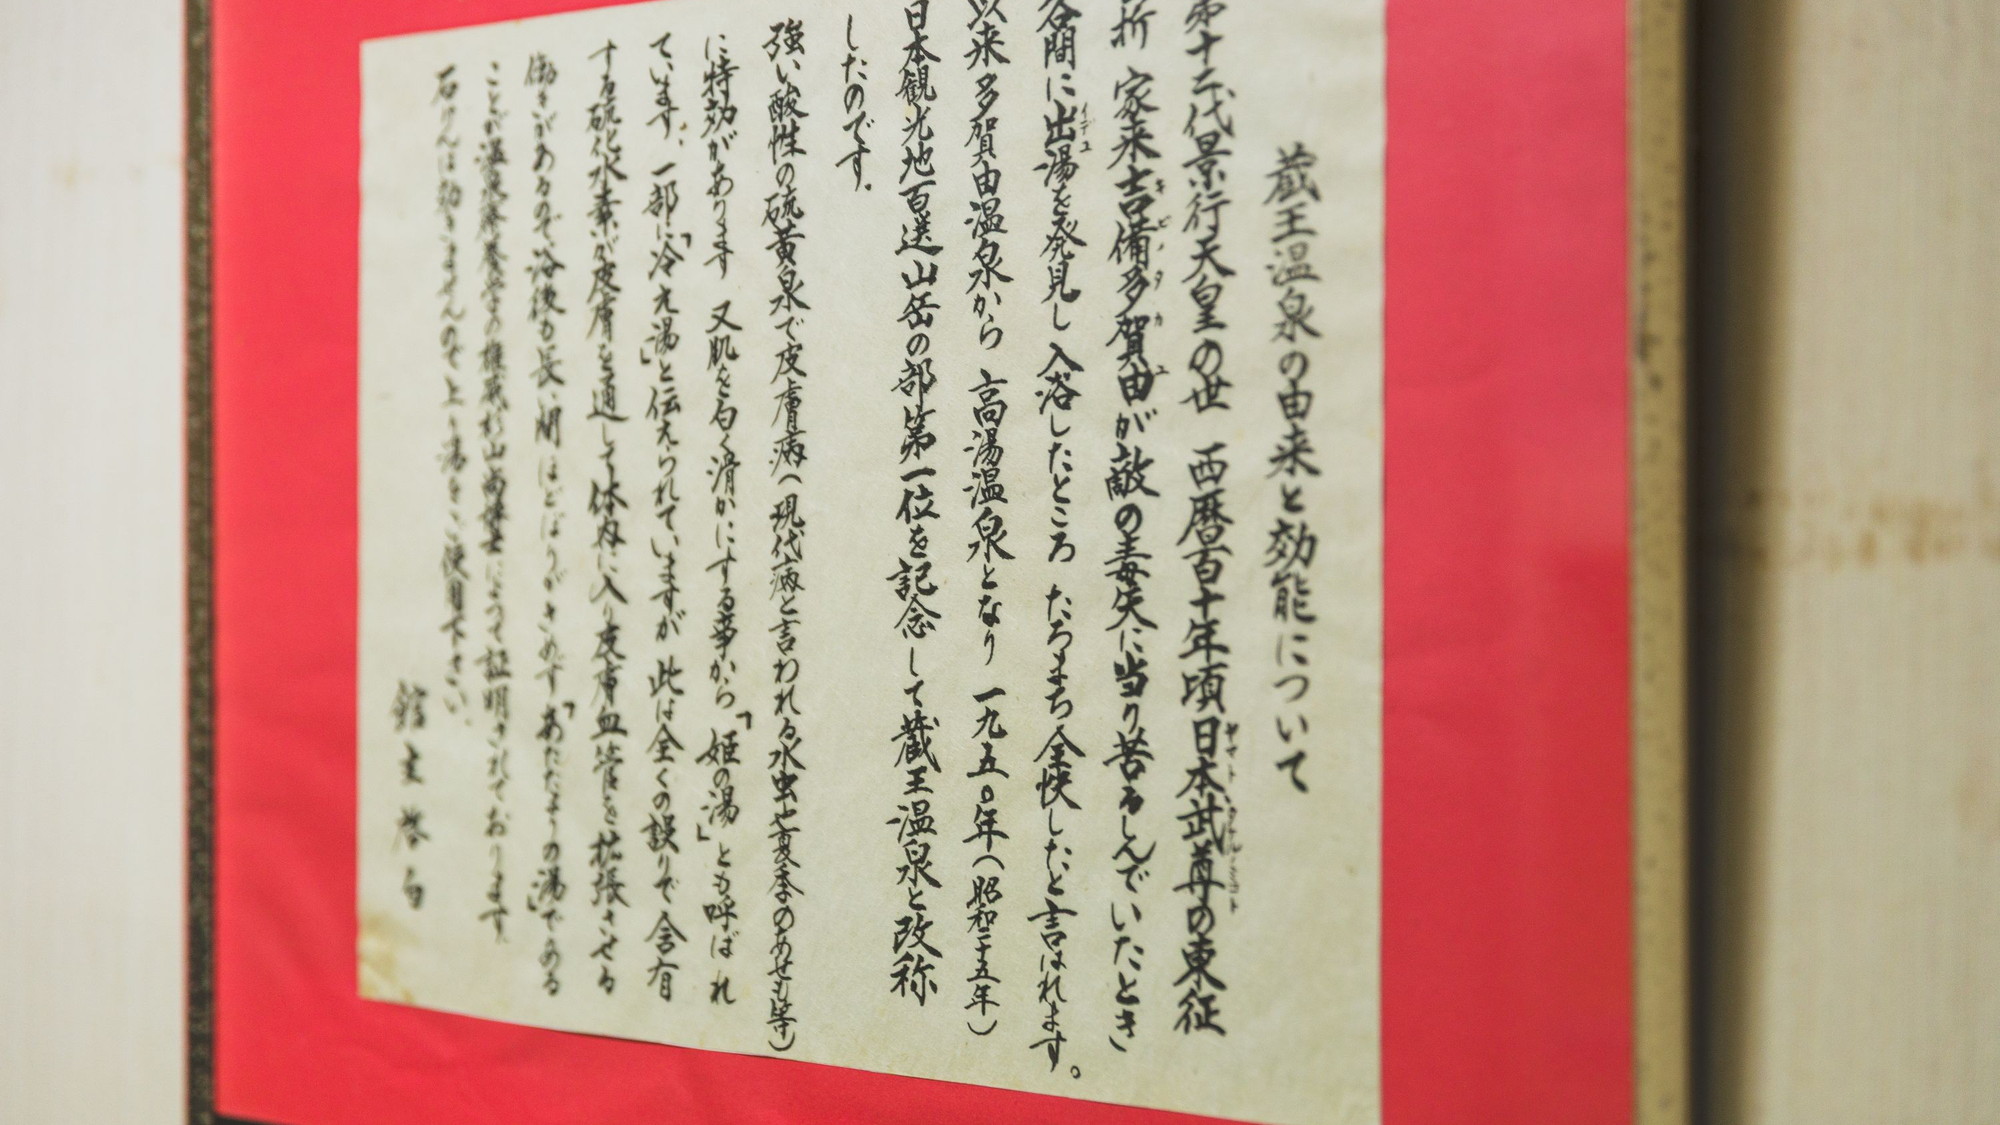 蔵王温泉の由来と効能について
第十二代景行天皇の世 西暦百十年頃日本武尊の東征
ヤマトタケルノミコト
折 家来吉備多賀由が敵の毒矢に当り苦るしんでいたとき
キビノタカユ
谷間に出湯を発見し入浴したところ たちまち全快したと言はれます。
イデユ
以来多賀由温泉から 高湯温泉となり 一九五〇年(昭和二十五年)
日本観光地百選山岳の部第一位を記念して蔵王温泉と改称
したのです。
強い酸性の硫黄泉で皮膚病(現代病と言われる水虫や夏季のあせも等)
に特効があります 又肌を白く滑かにする事から「姫の湯」とも呼ばれ
ています。一部に「冷え湯」と伝えられていますが 此は全くの誤りで含有
する硫化水素が皮膚を通して体内に入り皮膚血管を拡張させる
働きがあるので、浴後も長い間ほとぼりがさめず「あたたまりの湯」である
ことが温泉療養学の権威杉山尚博士によって証明されております。
石けんは効きませんので上り湯をご使用下さい。
館主敬白